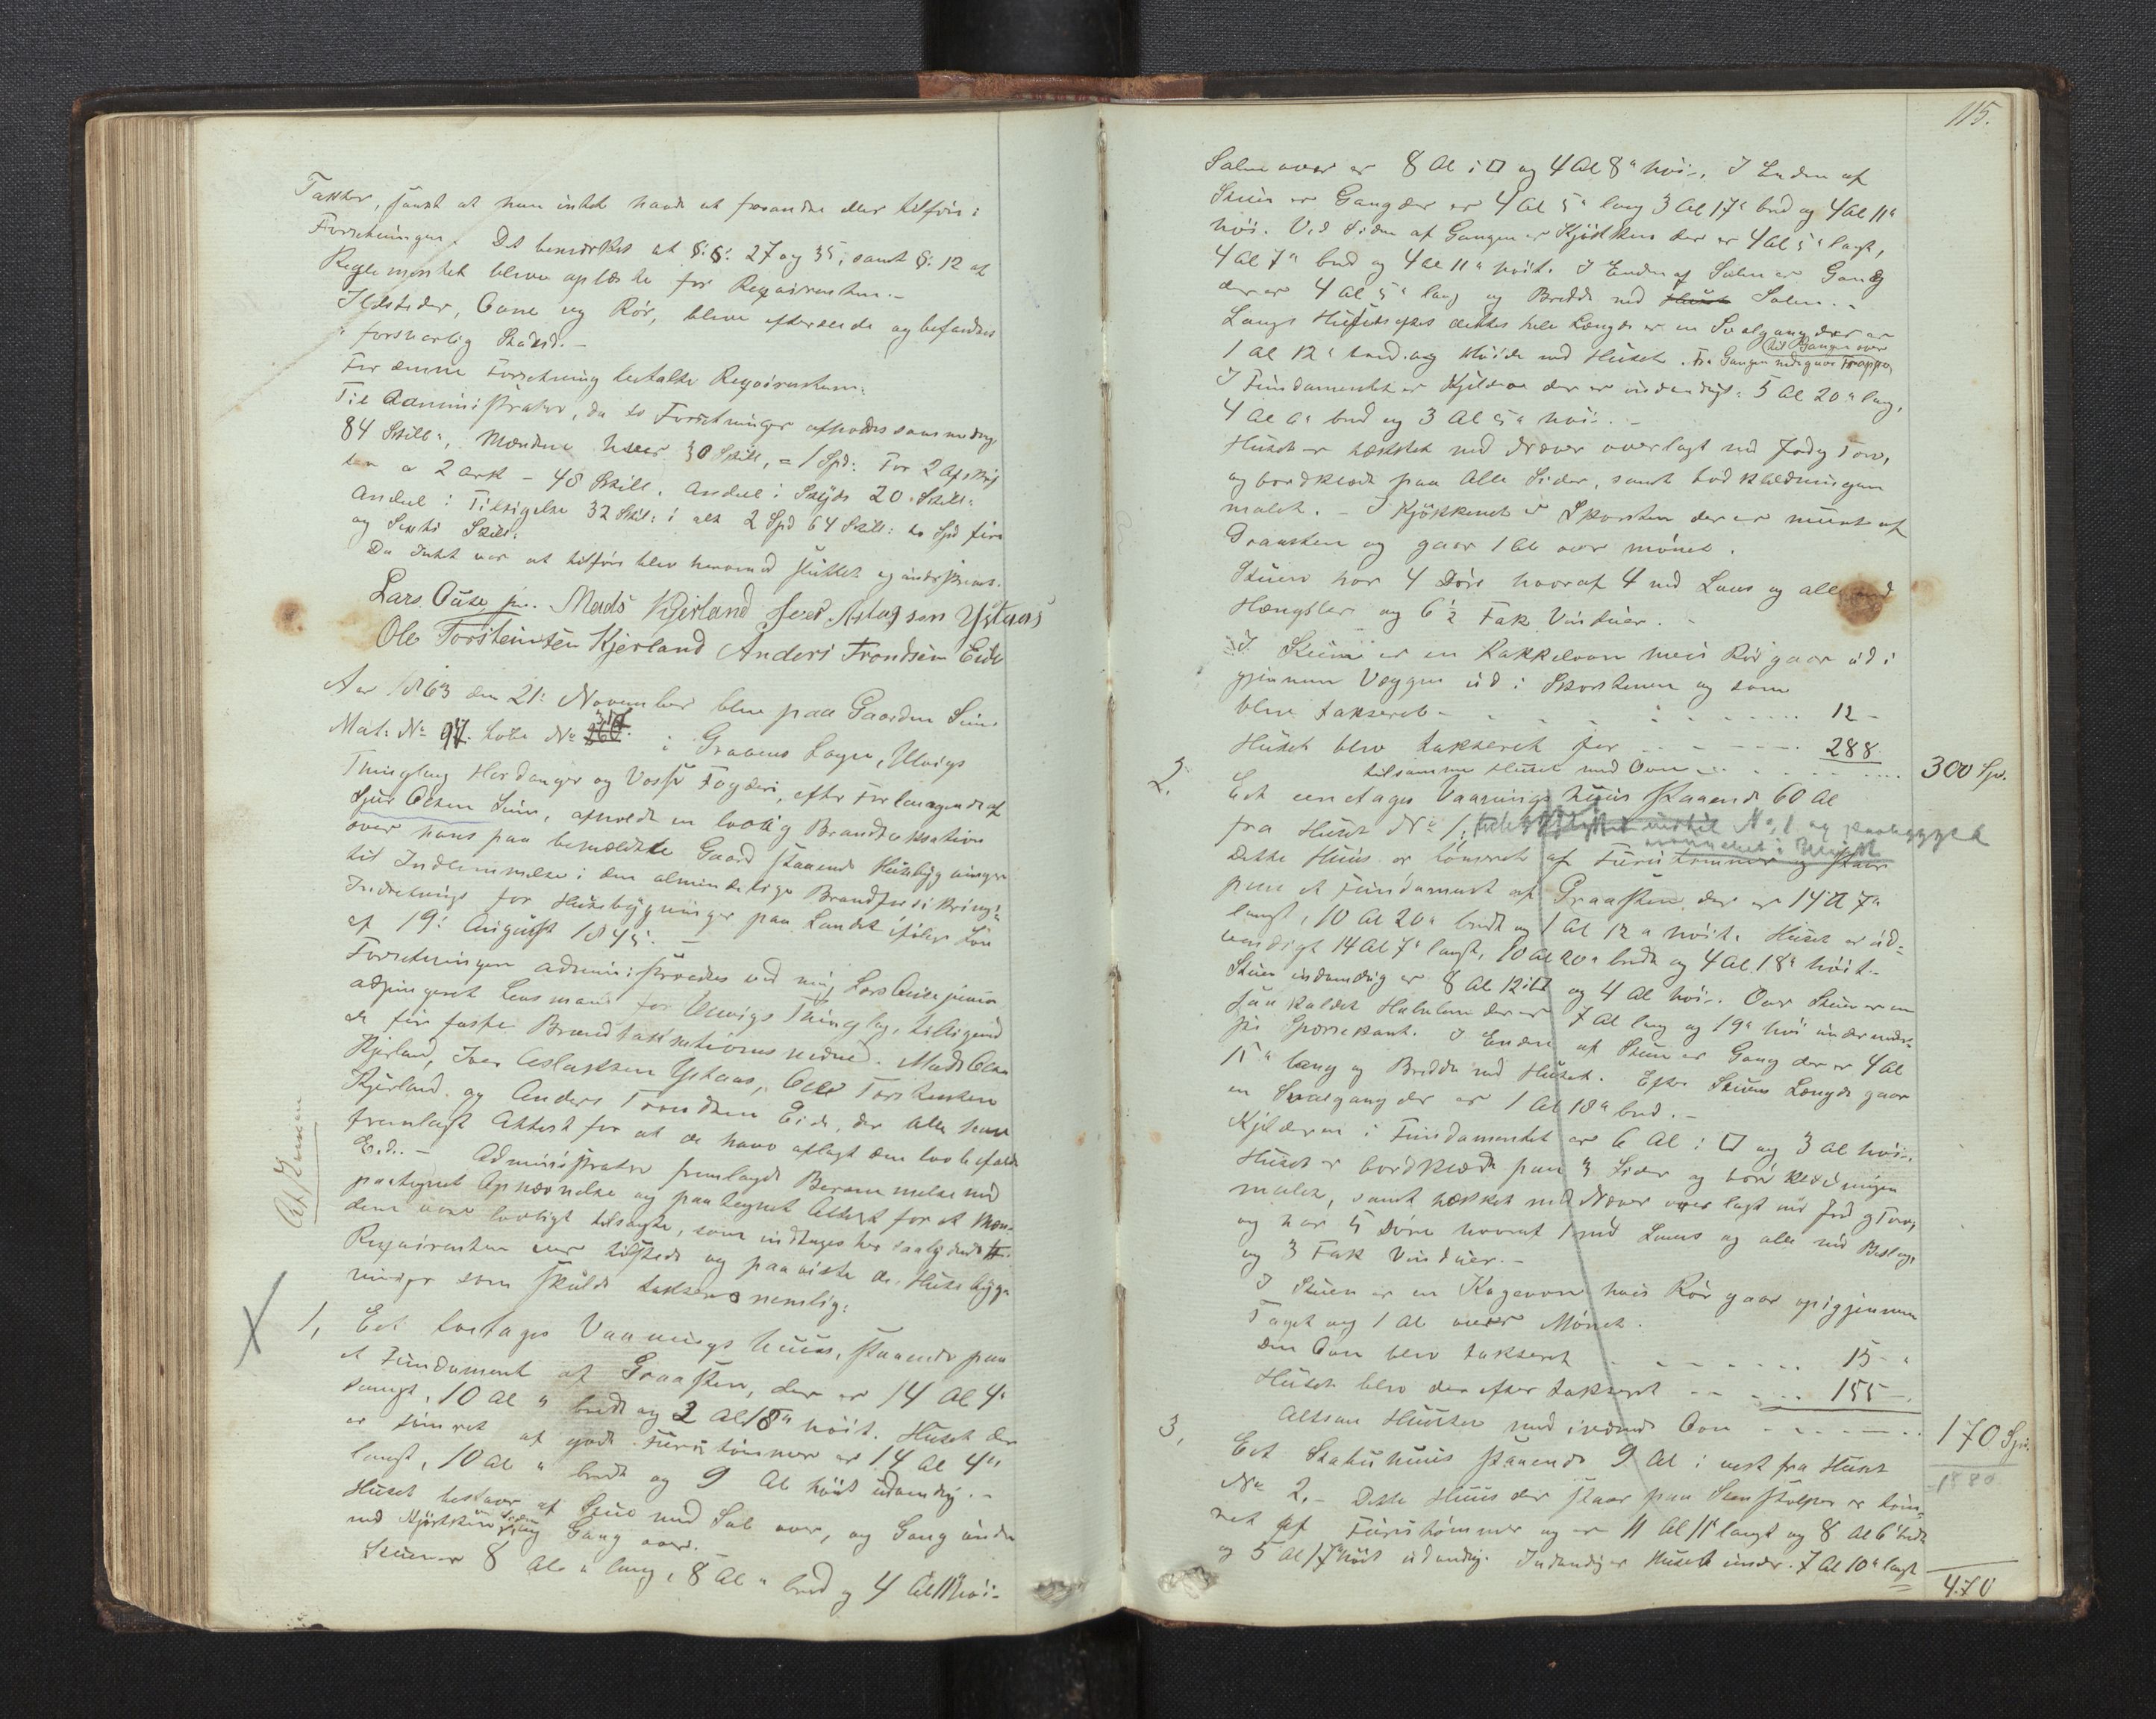 Takster, samt at han intet havde at foranden eller tilföie i
Forretningen. Det bemærkes at §.§: 27 og 35, samt §: 12 af
Reglementet blev oplæste for Reqvirenten.-
Ildsteder, Ovne og Rör, bleve efterseede og befandtes
i forsvarlig Stand.-
For denne Forretning betalte Reqvirenten:
Til Administrator, da to Forretninger afholdes samme dag
84 Skill:, Mændene hver 30 Skill, = 1 Spd: For 2 Afskrif
ter a 2 ark - 48 Skill. Andeel i Skyds 20 Skill:
Andeel i Tilsigelse 32 Skil: i alt 2 Spd 64 Skill: to Spd fire
og Sexti Skill:
Da Intet var at tilföie blev herved sluttet og underskrevet.
Lars Ouse jun. Mads Kjerland Iver Aslagsen Ystaas
Ole Torsteinsen Kjerland Anders Trondsen Eide
Aar 1863 den 21: November blev paa Gaarden Seim
Mat: No 97. Löbe No 317 i Gravens Sogn, Ulvigs
Thinglag Hardanger og Vosse Fogderi, efter Forlangende af
Sjur Olsen Seim, afholdt en lovlig Brandtaxation
over hans paa bemeldte Gaard staaende Huusbygninger
til Indlemmelse i den almindelige Brandforsikrings
Indretnings for Huusbygninger paa Landet ifölge Lov
af 19: August 1845. -
Forretningen administreredes ved mig Lars Ouse junior
adjungeret Lensmand for Ulvigs Thinglag, tilligemed
de fire faste Brandtaxationsmænd: Mads Olsen
Kjerland, Iver Aslaksen Ystaas, Ole Torstensen
Kjerland og Anders Trondsen Eide, der alle have
fremlagt Attest for at de have aflagt den lovbefalede
Eed. - Administrator fremlagde Berammelse med
paategnet Opnævnelse og paategnet Attest for at Mæn-
dene vare lovligt tilsagte, som indtages her saalydende
Reqvirenten var tilstede og paaviste de Huusbyg-
ninger som skulde takseres nemlig:
Af Lovsen
1, Eet toetages Vaaningshuus, staaende paa
et Fundament af Graasten, der er 14 Al 4"
langt, 10 Al " bredt og 2 Al 18" höit. Huset der
er tömret af godt Furutömmer er 14 Al 4"
langt, 10 Al " bredt og 9 Al höit udvendig.-
Huset bestaar af Stue med Sal over, og Gang under
med Kjökken ved Siden og Gang over.-
Stuen er 8 Al " lang, 8 Al " bred og 4 Al 11" höi:-
115.
Salen over er 8 Al i □ og 4 Al 8" höi-. I Enden af
Stuen er Gang der er 4 Al 5" lang 3 Al 17" bred og 4 Al 11"
höi. Ved Siden af Gangen er Kjökken der er 4 Al 5" langt,
4 Al 7" bred og 4 Al 11" höit. I Enden af Salen er Gang
der er 4 Al 5" lang og Bredde med Salen.-
Langs Husets dettes hele Længde er en Svalgang der er
1 Al 12" bred og Höide med Huset. Fra Gangen nede gaar Trappe
til Gangen over
I Fundamentet er Kjelder der er indvendigt: 5 Al 20" lang,
4 Al 6" bred og 3 Al 5" höi.-
Huset er tækket med Næver overlagt med Jord og Torv,
og bordklædt paa alle Sider, samt bordklædningen
malet. - I Kjökkenet er Skorsten der er muret af
Graasten og gaar 1 Al over mönet.
Stuen har 4 Döre hvoraf 4 med Laas og alle med
Hængsler og 6½ Fak Vinduer.-
I Stuen er en Kakkelovn hvis Rör gaar ud i
gjennem Væggen ud i Skorstenen og som
blev takseret - - - - - 12 -
Huset blev takseret for - - - - 288
tilsammen Huset med Ovn - - - - 300 Sp.
2. Eet eenetages Vaaningshuus staaende 60 Al
fra Huset No 1, No, 1 og paabygget
Dette Huus er tömret af Furutömmer og staar
paa et Fundament af Graasten der er 14 Al 7"
langt, 10 Al 20" bredt og 1 Al 12" höit. Huset er ud-
vendigt 14 Al 7" langt, 10 Al 20" bredt og 4 Al 18" höit.-
Stuen indvendig er 8 Al 12 i □ og 4 Al höi-. Over Stuen er en
saa kaldet Halvlem der er 7 Al lang og 19" höi under neder-
ste Sperrekant. I Enden af Stuen er Gang der er 4 Al
15" lang og Bredde med Huset. Efter Stuens Længde gaar
en Svalgang der er 1 Al 18" bred.-
Kjelderen i Fundamentet er 6 Al i □ og 3 Al höi-.
Huset er bordklædt paa 3 Sider og bordklædningen
malet, samt tækket med Næver overlagt med Jord og Torv,
og har 5 Döre hvoraf 1 med Laas og alle med Beslag,
og 3 Fak Vinduer.-
I Stuen er en Kogeovn hvis Rör gaar op igjennem
Taget og 1 Al over Mönet.
Den Ovn blev takseret - - - - 15 - "
Huset blev derefter takseret - - - - 155 -
Altsaa Huset med Ovn - - - - 170 Spd.
1880
3, Eet Stabuhuus staaende 9 Al i vest fra Huset
No 2.- Dette Huus der staar paa Stenstolper er töm-
ret af Furutömmer og er 11 Al 11" langt og 8 Al 6" bredt
og 5 Al 17" höit udvendig. Indvendig er Huset under 7 Al 10" langt
470